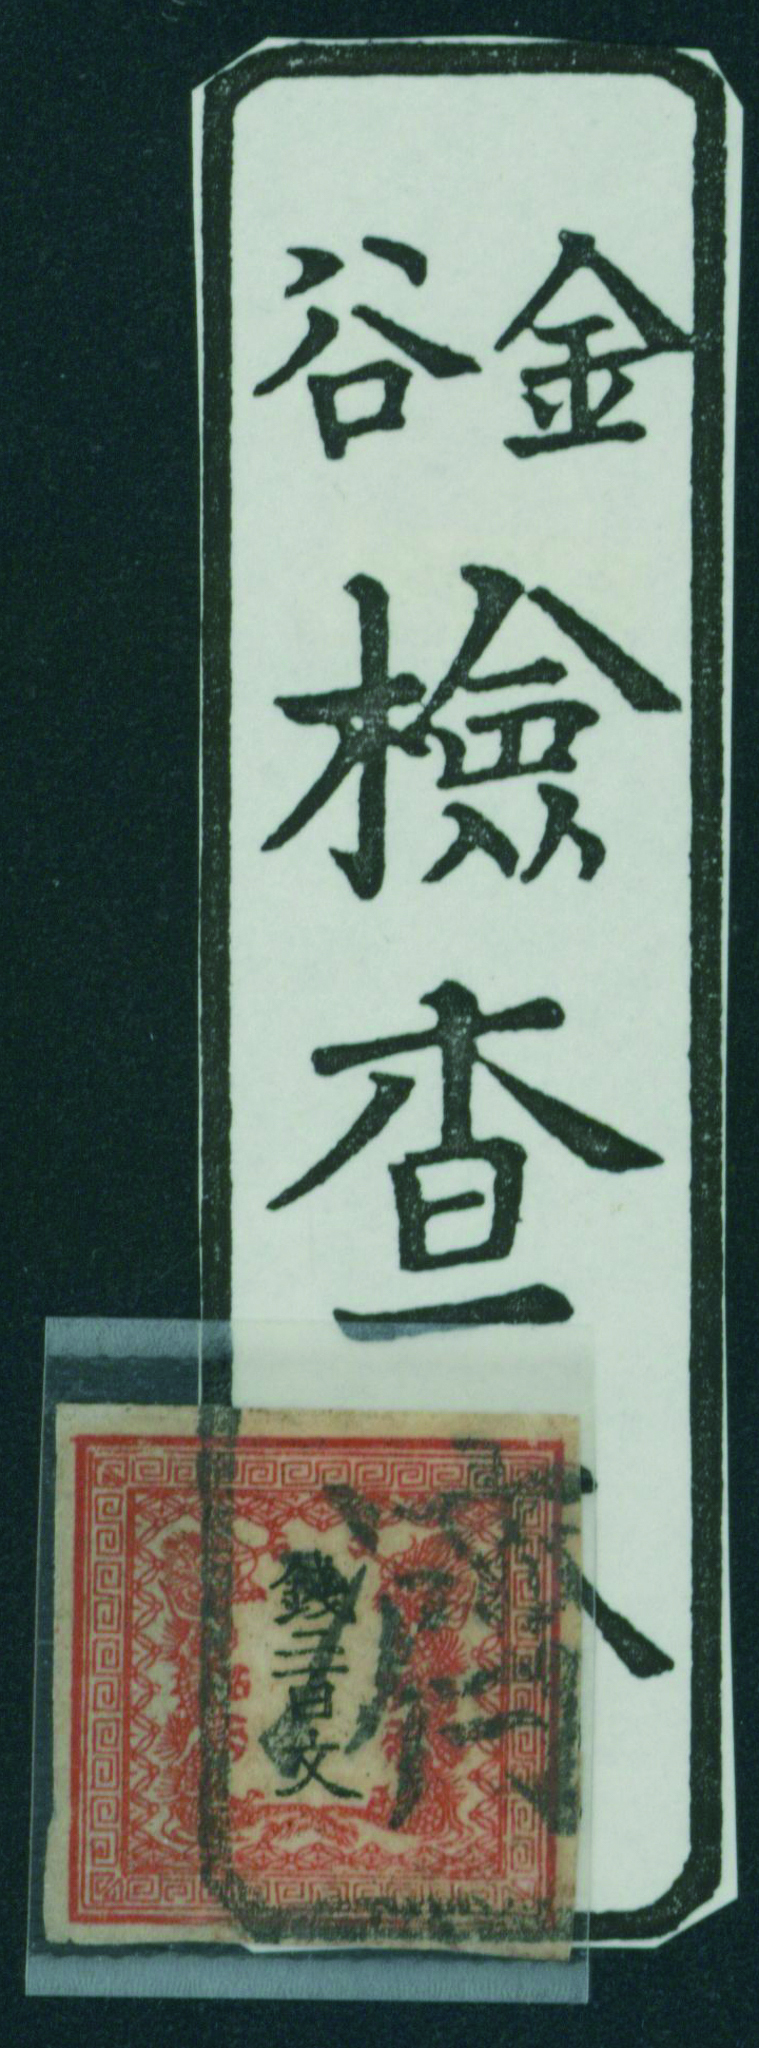 金谷
檢
查
濟
錢二百文